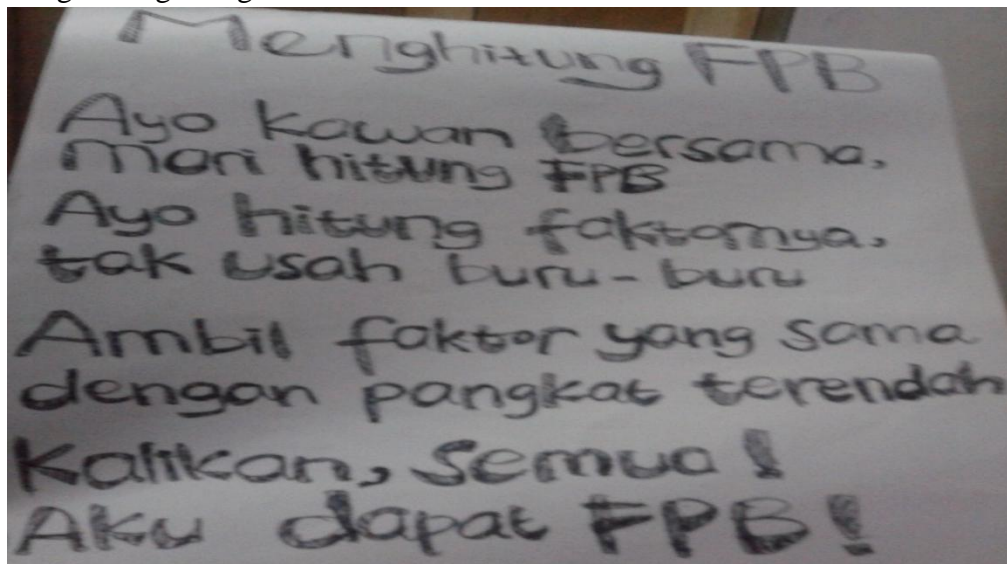 Menghitung FPB
Ayo kawan bersama,
mari hitung FPB
Ayo hitung faktornya,
tak usah buru-buru
Ambil faktor yang sama
dengan pangkat terendah
Kalikan, semua!
Aku dapat FPB!